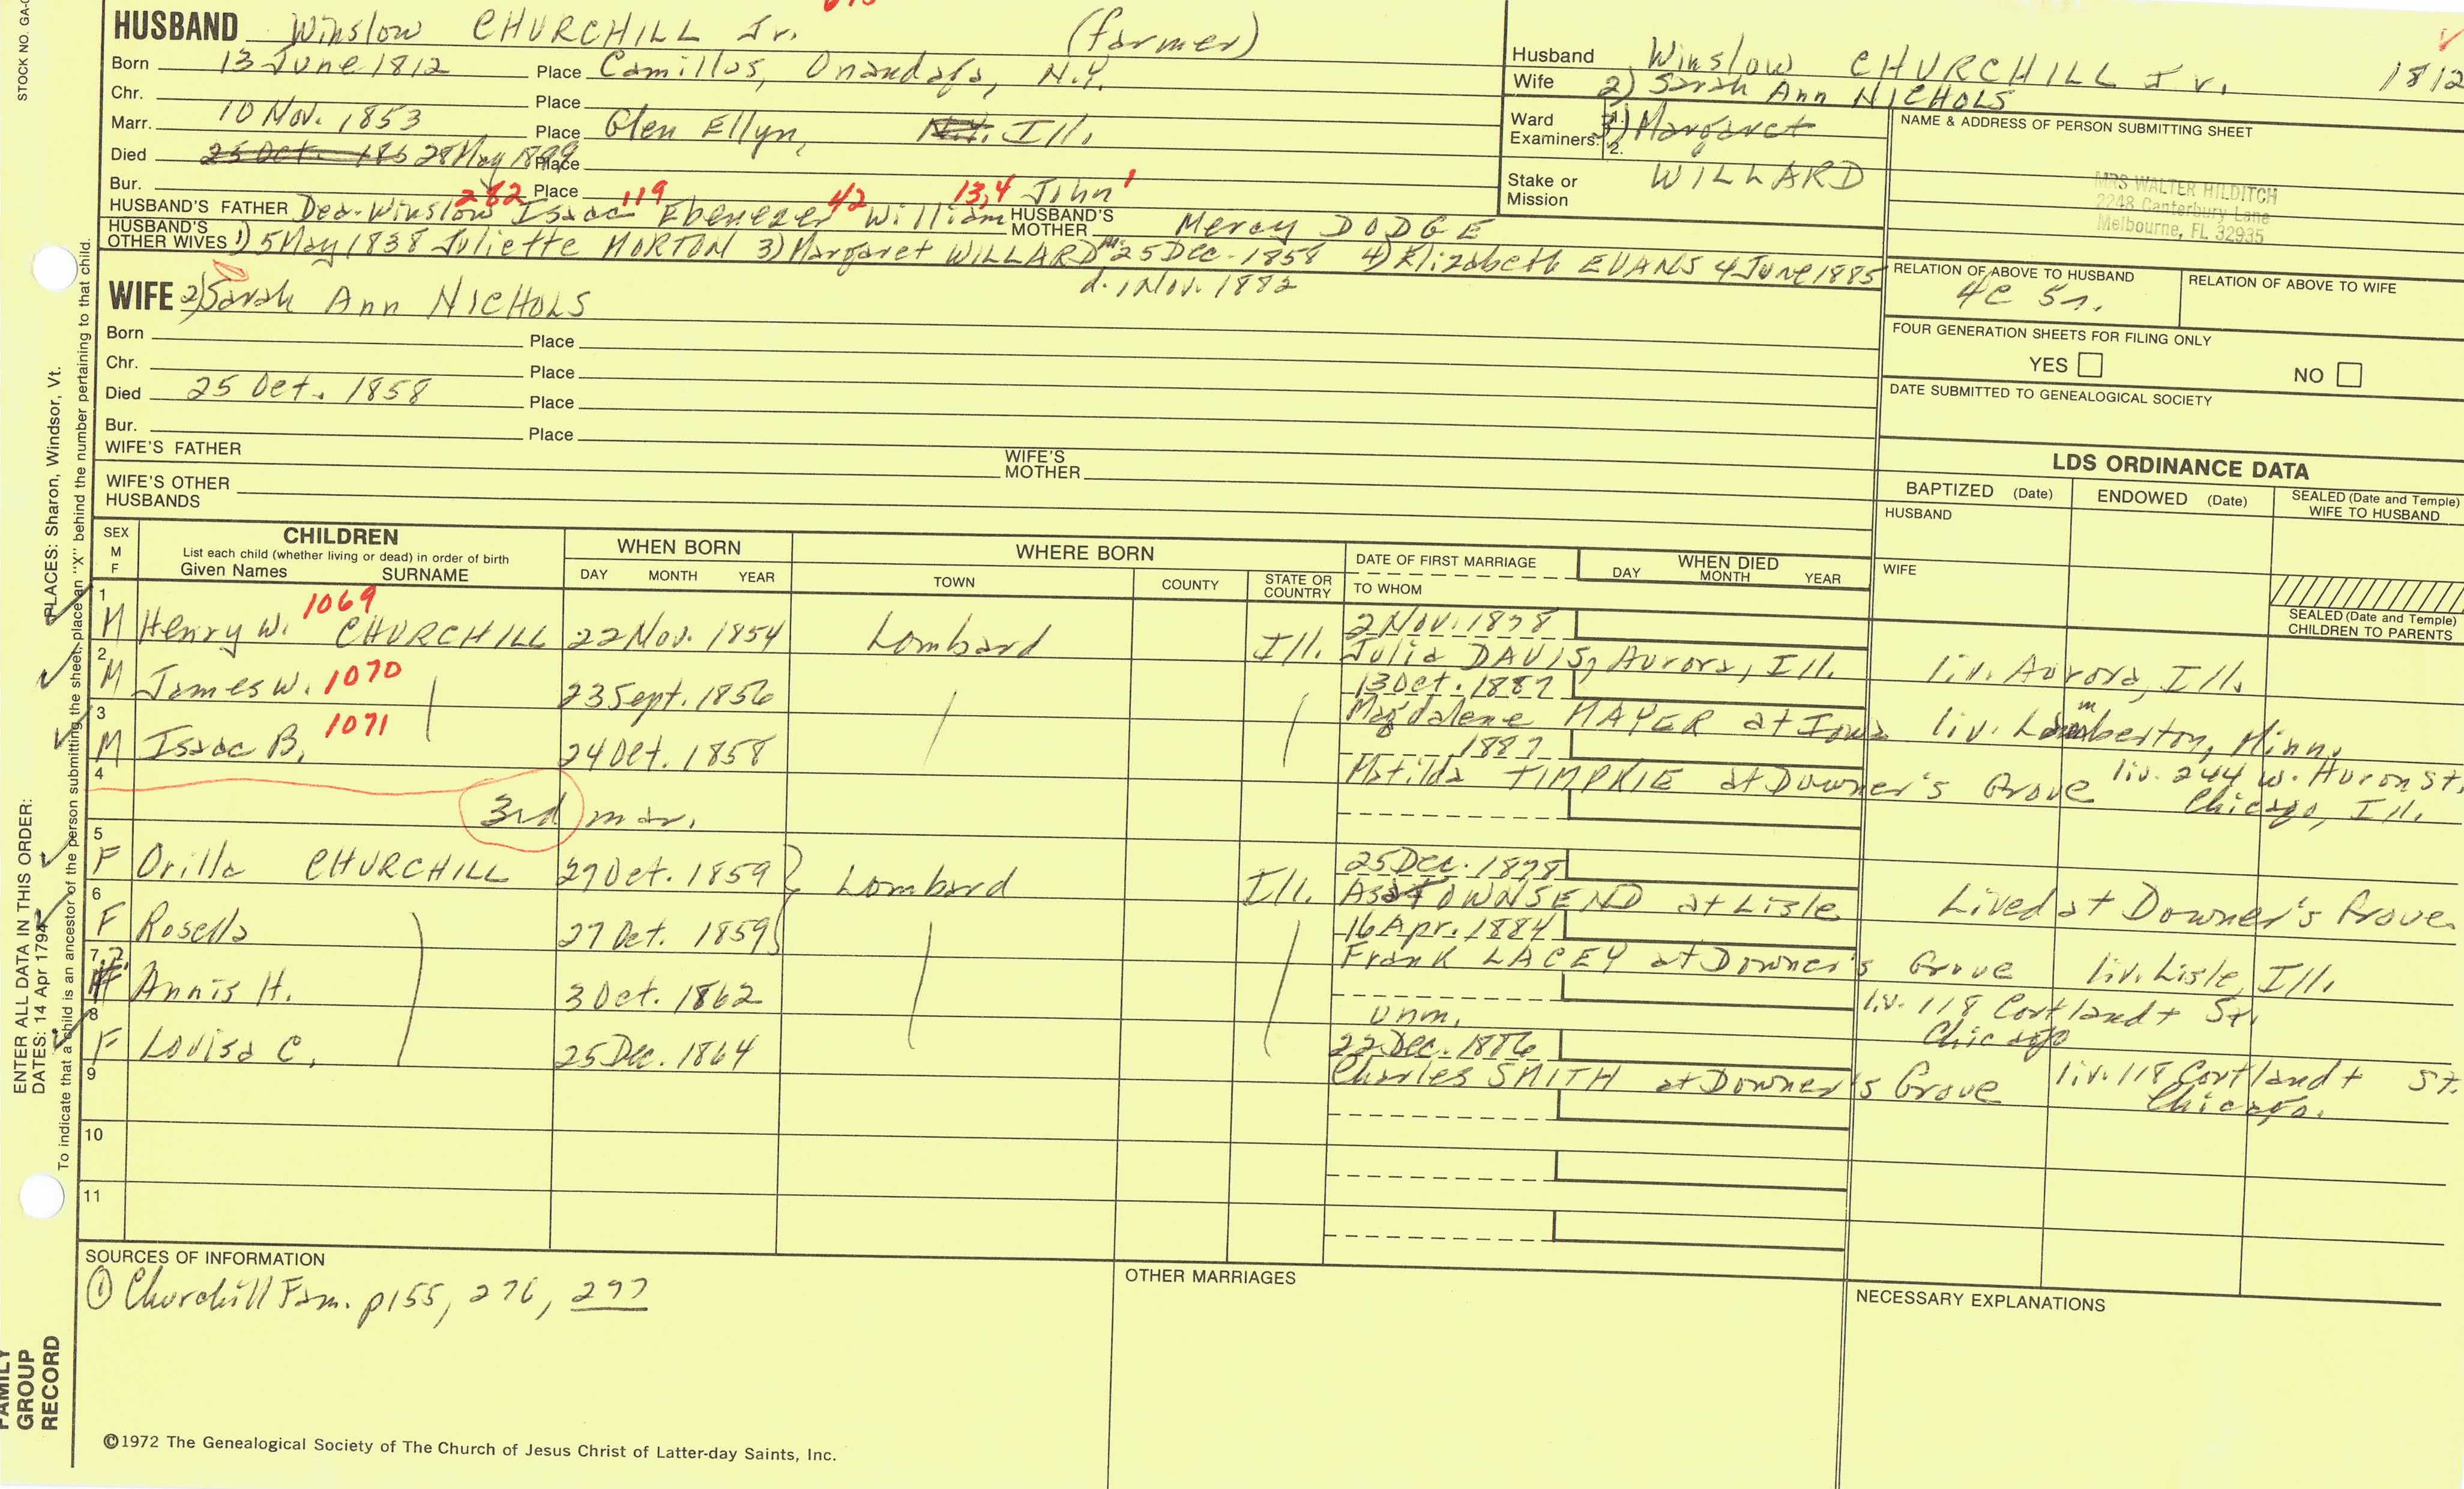 STOCK NO. GA-
HUSBAND Winslow CHURCHILL Jr. (farmer)
Born 13 June 1812 Place Camillos, Onandafa, N.Y.
Chr. Place
Marr. 10 Nov. 1853 Place Glen Ellyn, N.Y. Ill.
Died 25 Oct. 185 28 May 1899 Place
Bur. Place
HUSBAND'S FATHER Dea. Winslow 282 Isaac 119 Ebenezer 42 William 13,4 John 1 HUSBAND'S MOTHER Mercy DODGE
HUSBAND'S OTHER WIVES 1) 5 May 1838 Juliette MORTON 3) Margaret WILLARD m. 25 Dec. 1858 4) Elizabeth EVANS 4 June 1885
d. 1 Nov. 1882
WIFE 2) Sarah Ann NICHOLS
Born Place
Chr. Place
Died 25 Oct. 1858 Place
Bur. Place
WIFE'S FATHER WIFE'S MOTHER
WIFE'S OTHER HUSBANDS
Husband Winslow CHURCHILL Jr. 1812
Wife 2) Sarah Ann NICHOLS
Ward Examiners: 1. 2. 3) Margaret
Stake or Mission WILLARD
NAME & ADDRESS OF PERSON SUBMITTING SHEET
MRS WALTER HILDITCH
2248 Canterbury Lane
Melbourne, FL 32935
RELATION OF ABOVE TO HUSBAND RELATION OF ABOVE TO WIFE
4C 5r.
FOUR GENERATION SHEETS FOR FILING ONLY
YES NO
DATE SUBMITTED TO GENEALOGICAL SOCIETY
LDS ORDINANCE DATA
BAPTIZED (Date) ENDOWED (Date) SEALED (Date and Temple) WIFE TO HUSBAND
HUSBAND
WIFE
SEALED (Date and Temple) CHILDREN TO PARENTS
SEX M F CHILDREN List each child (whether living or dead) in order of birth Given Names SURNAME WHEN BORN DAY MONTH YEAR WHERE BORN TOWN COUNTY STATE OR COUNTRY DATE OF FIRST MARRIAGE TO WHOM WHEN DIED DAY MONTH YEAR
1 M Henry W. 1069 CHURCHILL 22 Nov. 1854 Lombard Ill. 2 Nov. 1878
Julia DAVIS, Aurora, Ill. liv. Aurora, Ill.
2 M James W. 1070 23 Sept. 1856 13 Oct. 1887
Magdalene MAYER at Iowa liv. Lamberton, Minn.
3 M Isaac B. 1071 24 Oct. 1858 1887
Matilda TIMPKIE at Downer's Grove liv. 244 W. Huron St. Chicago, Ill.
4 3rd mar.
5 F Orilla CHURCHILL 27 Oct. 1859 Lombard Ill. 25 Dec. 1878
Asa TOWNSEND at Lisle Lived at Downer's Grove
6 F Rosella 27 Oct. 1859 16 Apr. 1884
Frank LACEY at Downer's Grove liv. Lisle, Ill.
7 F Annis H. 3 Oct. 1862 unm. liv. 118 Cortlandt St. Chicago
8 F Louisa C. 25 Dec. 1864 22 Dec. 1886
Charles SMITH at Downer's Grove liv. 118 Cortlandt St. Chicago.
9
10
11
SOURCES OF INFORMATION
① Churchill Fam. p155, 276, 277
OTHER MARRIAGES
NECESSARY EXPLANATIONS
©1972 The Genealogical Society of The Church of Jesus Christ of Latter-day Saints, Inc.
FAMILY GROUP RECORD
ENTER ALL DATA IN THIS ORDER:
DATES: 14 Apr 1794
PLACES: Sharon, Windsor, Vt.
To indicate that a child is an ancestor of the person submitting the sheet, place an "X" behind the number pertaining to that child.